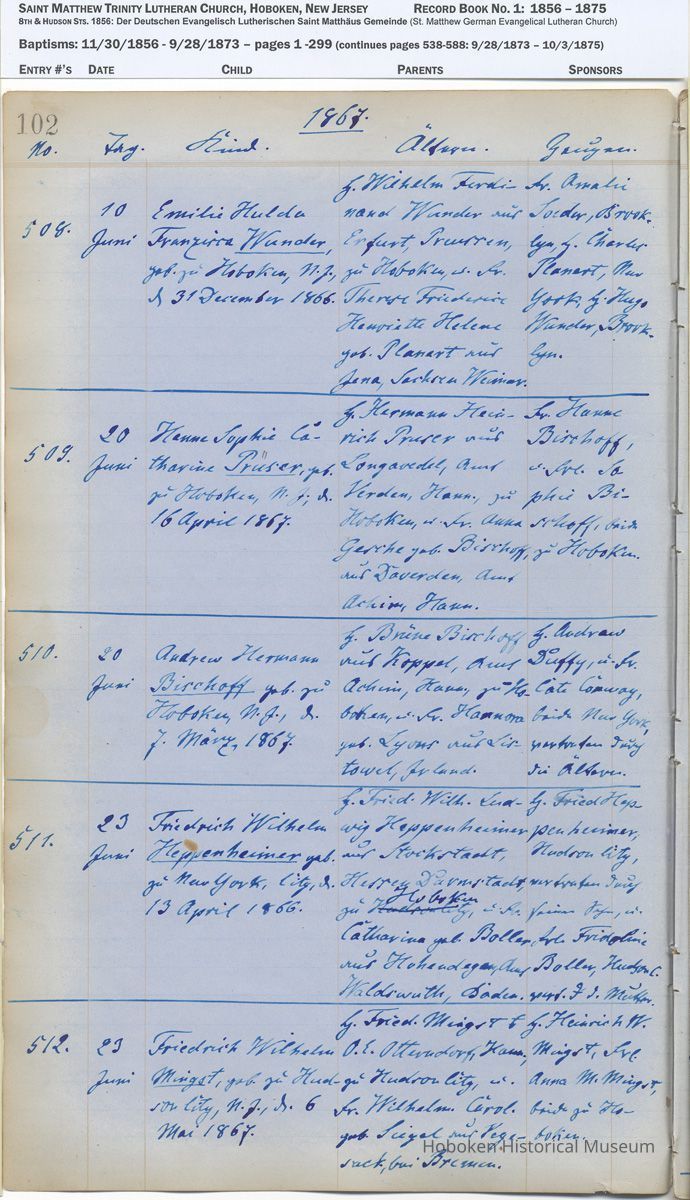 SAINT MATTHEW TRINITY LUTHERAN CHURCH, HOBOKEN, NEW JERSEY RECORD BOOK NO. 1: 1856 – 1875
8TH & HUDSON STS. 1856: Der Deutschen Evangelisch Lutherischen Saint Matthäus Gemeinde (St. Matthew German Evangelical Lutheran Church)
Baptisms: 11/30/1856 - 9/28/1873 – pages 1 -299 (continues pages 538-588: 9/28/1873 – 10/3/1875)
ENTRY #'S DATE CHILD PARENTS SPONSORS
102
1867.
No. Tag. Kind. Ältern. Zeugen.
508.
10
Juni
Emilie Hulda
Franzisca Wunder,
geb. zu Hoboken, N.J.,
d. 31 December 1866.
H. Wilhelm Ferdi-
nand Wunder aus
Erfurt, Preussen,
zu Hoboken, u. Fr.
Therese Friederice
Henriette Helene
geb. Planert aus
Jena, Sachsen Weimar.
Fr. Amalie
Soeder, Brook-
lyn, H. Charles
Planert, New
York, H. Hugo
Wunder, Brook-
lyn.
509.
20
Juni
Hanne Sophie Ca-
tharine Prüser, geb.
zu Hoboken, N.J., d.
16 April 1867.
H. Hermann Hein-
rich Pruser aus
Langwedel, Amt
Verden, Hann., zu
Hoboken, u. Fr. Anna
Gesche geb. Bischoff,
aus Daverden, Amt
Achim, Hann.
Fr. Hanne
Bischoff,
u. Frl. So
phie Bi-
schoff, beide
zu Hoboken.
510.
20
Juni
Andrew Hermann
Bischoff geb. zu
Hoboken, N.J., d.
7. März, 1867.
H. Brüne Bischoff
aus Koppel, Amt
Achim, Hann., zu Ho-
boken, u. Fr. Hannora
geb. Lyons aus Lis-
towel, Irland.
H. Andrew
Duffy, u. Fr.
Cate Conway,
beide New York,
vertreten durch
die Ältern.
511.
23
Juni
Friedrich Wilhelm
Heppenheimer geb.
zu New York, City, d.
13 April 1866.
H. Fried. Wilh. Lud-
wig Heppenheimer
aus Stockstadt,
Hessen Darmstadt,
Hoboken
zu Hudson City, u. Fr.
Catharina geb. Boller,
aus Hohendagen, Amt
Waldswuth, Baden.
H. Fried Hep-
penheimer,
Hudson City,
vertreten durch
seinen Sohn, u.
Frl. Fridoline
Boller, Hudson C.
vert. d. d. Mutter.
512.
23
Juni
Friedrich Wilhelm
Mingst, geb. zu Hud-
son City, N.J., d. 6
Mai 1867.
H. Fried. Mingst
Otterndorf, Hann.,
zu Hudson City, u.
Fr. Wilhelm. Carol.
geb. Siegel aus Vege-
sack, bei Bremen.
H. Heinrich W.
Mingst, Frl.
Anna M. Mingst,
beide zu Ho-
boken.
Hoboken Historical Museum